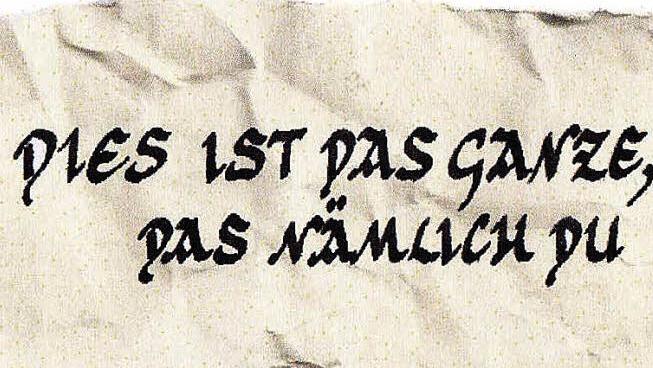 DIES IST DAS GANZE,
DAS NÄMLICH DU